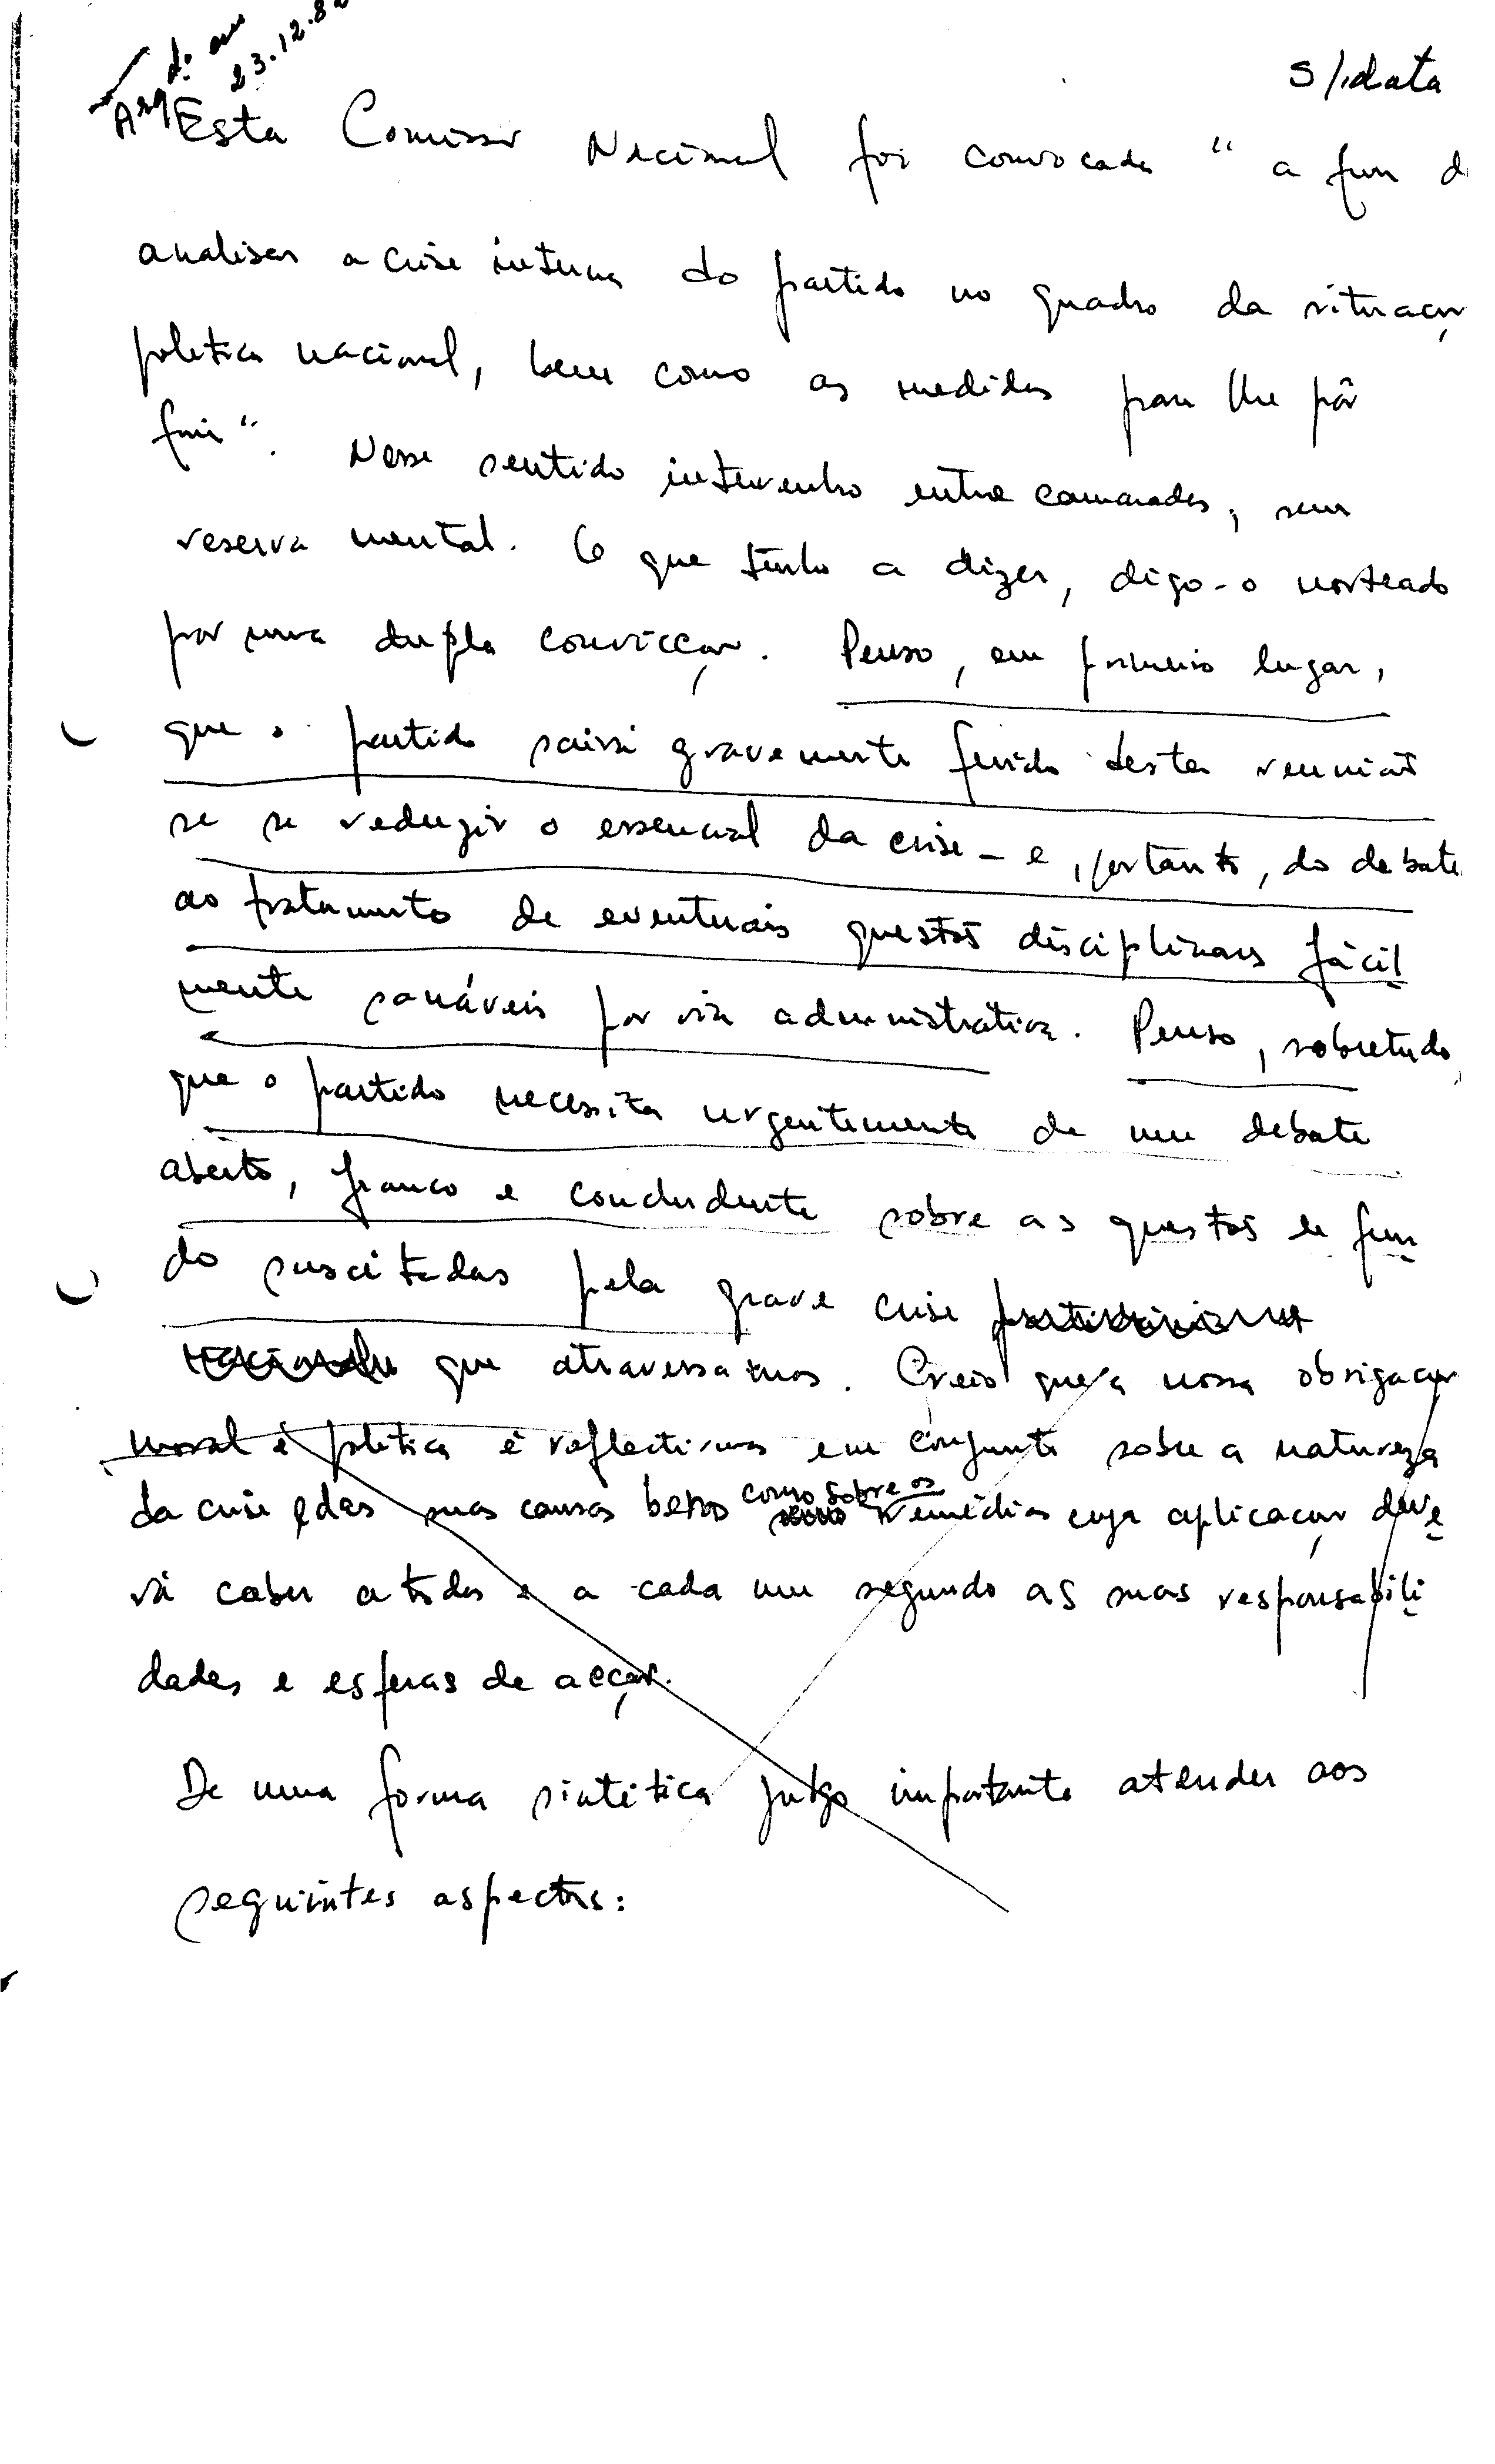 s/data
23.12.8
Esta Comissão Nacional foi convocada "a fim d
analisar a crise interna do partido no quadro da situação
política nacional, bem como as medidas para lhe pôr
fim". Nesse sentido intervenho entre camaradas, sem
reserva mental. O que tenho a dizer, digo-o norteado
por uma dupla convicção. Penso, em primeiro lugar,
que o partido sairá gravemente ferido desta reunião
se se reduzir o essencial da crise - e, portanto, do debate
ao tratamento de eventuais questões disciplinares fácil
mente sanáveis por via administrativa. Penso, sobretudo,
que o partido necessita urgentemente de um debate
aberto, franco e concludente sobre as questões de fun
do suscitadas pela grave crise
que atravessamos. Creio que a nossa obrigação
moral e política é reflectirmos em conjunto sobre a natureza
da crise e das suas causas bem como sobre os remédios cuja aplicação deve
rá caber a todos e a cada um segundo as suas responsabili
dades e esferas de acção.
De uma forma sintética julgo importante atender aos
seguintes aspectos: